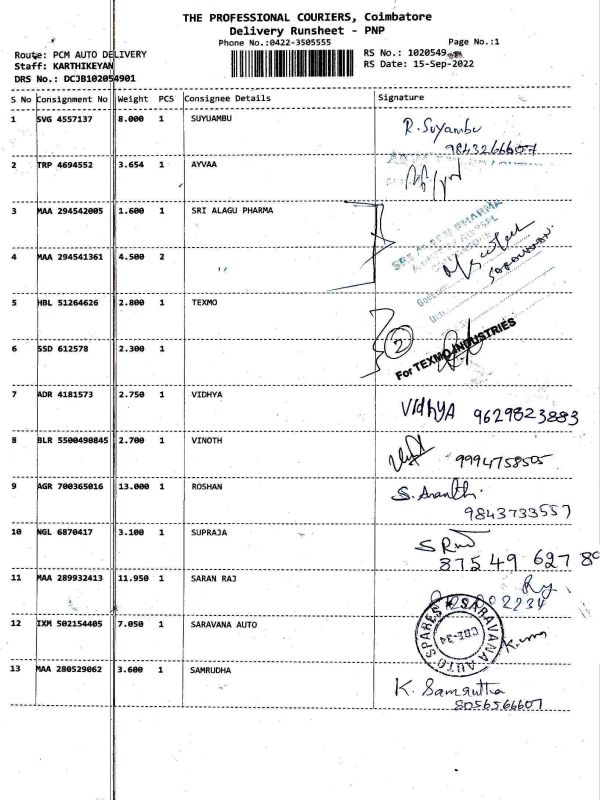 THE PROFESSIONAL COURIERS, Coimbatore
Delivery Runsheet - PNP
Phone No.:0422-3505555 Page No.:1
Route: PCM AUTO DELIVERY RS No.: 1020549
Staff: KARTHIKEYAN RS Date: 15-Sep-2022
DRS No.: DCJB102054901
S No Consignment No Weight PCS Consignee Details Signature
1 SVG 4557137 8.000 1 SUYUAMBU R. Suyambu
9843266607
2 TRP 4694552 3.654 1 AYVAA
3 MAA 294542005 1.600 1 SRI ALAGU PHARMA
4 MAA 294541361 4.500 2 ,,
SARAVANAN.
5 HBL 51264626 2.800 1 TEXMO
2
For TEXMO INDUSTRIES
6 SSD 612578 2.300 1
7 ADR 4181573 2.750 1 VIDHYA Vidhya 9629823883
8 BLR 5500490845 2.700 1 VINOTH 9994758505
9 AGR 700365016 13.000 1 ROSHAN S. Ananthi.
9843733557
10 NGL 6870417 3.100 1 SUPRAJA
87549 62780
11 MAA 289932413 11.950 1 SARAN RAJ
12 IXM 502154405 7.050 1 SARAVANA AUTO
SARAVANA AUTO SPARES
CBE-34
13 MAA 280529062 3.600 1 SAMRUDHA K. Samrutha
8056566607